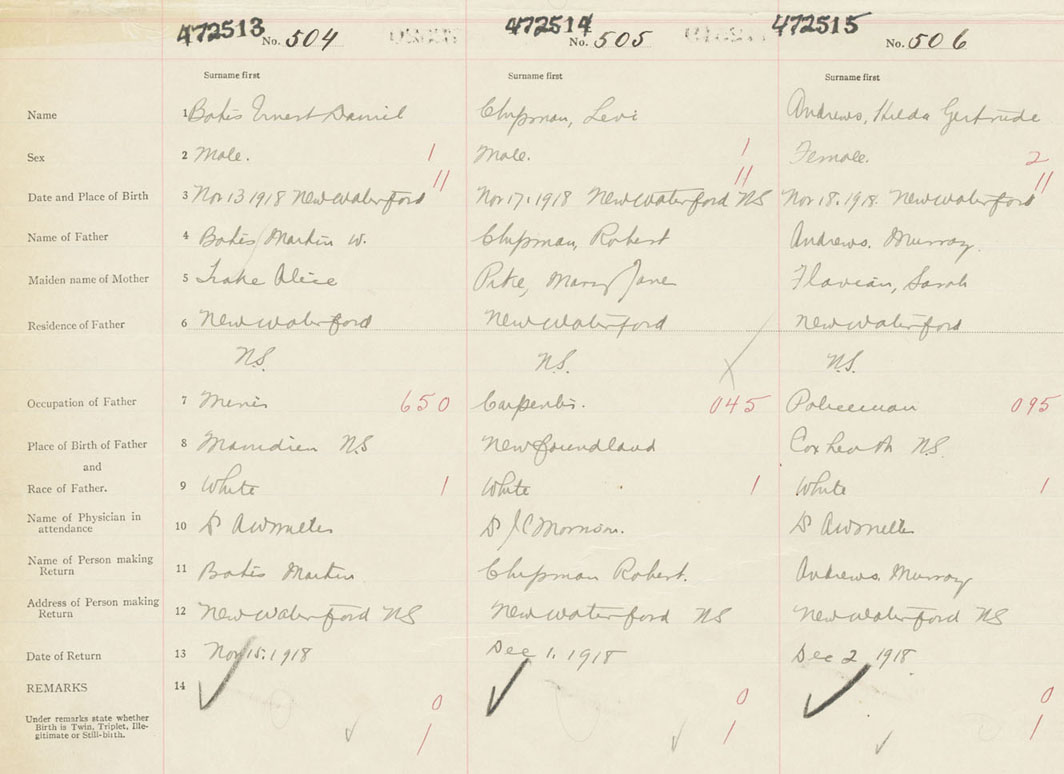 472513 No. 504 472514 No. 505 472515 No. 506
Surname first Surname first Surname first
Name 1 Ernest Daniel Chapman, Levi Andrews, Hilda Gertrude
Sex 2 Male. 1 Male. 1 Female. 2
11 11 11
Date and Place of Birth 3 Nov 13 1918 New Waterford Nov 17. 1918 New Waterford NS Nov 18. 1918. New Waterford
Name of Father 4 Martin W. Chapman, Robert Andrews. Murray.
Maiden name of Mother 5 Alice Pike, Mary Jane Flavian, Sarah
Residence of Father 6 New Waterford New Waterford New Waterford
N.S. N.S. N.S.
Occupation of Father 7 650 Carpenter. 045 Policeman 095
Place of Birth of Father 8 NS Newfoundland Coxheath NS.
and
Race of Father. 9 White 1 White 1 White 1
Name of Physician in
attendance 10 Dr Dr J C Morrison. Dr
Name of Person making
Return 11 Martin Chapman Robert. Andrews. Murray
Address of Person making
Return 12 New Waterford NS New Waterford NS New Waterford NS
Date of Return 13 Nov 15. 1918 Dec 1. 1918 Dec 2 1918.
REMARKS 14
0 0 0
Under remarks state whether
Birth is Twin, Triplet, Ille-
gitimate or Still-birth. 1 1 1